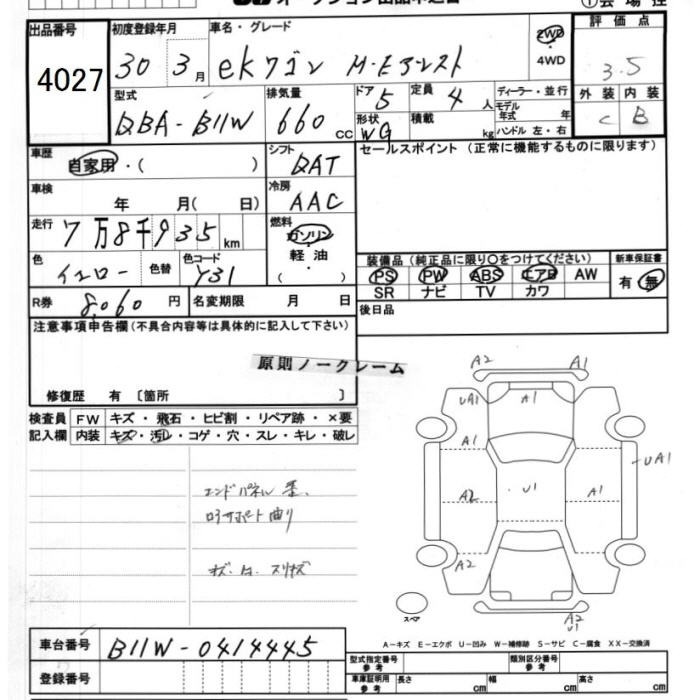 出品番号
4027
初度登録年月
30 3月
車名・グレード
ekワゴン M・Eアシスト
2WD
4WD
評価点
3.5
外装 内装
C B
型式
DBA-B11W
排気量
660 CC
ドア 5
定員 4 人
形状 WG
積載 kg
ディーラー・並行
モデル年式 年
ハンドル 左・右
車歴
自家用・( )
シフト
DAT
セールスポイント (正常に機能するものに限ります)
車検
年 月( 日)
冷房
AAC
走行
7万8千935km
燃料
ガソリン・
軽油・
( )
色
イエロー
色替
色コード
Y31
装備品 (純正品に限り○をつけてください)
PS PW ABS エアB AW
SR ナビ TV カワ
新車保証書
有・無
R券 8,060円
名変期限 月 日
後日品
注意事項申告欄 (不具合内容等は具体的に記入して下さい)
原則ノークレーム
修復歴 有 〔箇所 〕
検査員
記入欄
FW キズ・飛石・ヒビ割・リペア跡・×要
内装 キズ・汚レ・コゲ・穴・スレ・キレ・破レ
A2 A1
UA1 A1
A1
UA1
A2 U1 A1
A2
A2
U1
スペア
車台番号
B11W-0414445
登録番号
A-キズ E-エクボ U-凹み W-補修跡 S-サビ C-腐食 XX-交換済
型式指定番号 参考
類別区分番号 参考
車庫証明用 参考
長さ cm 幅 cm 高さ cm